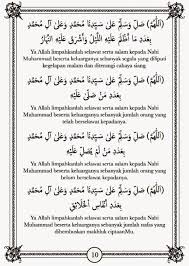 (اَللّٰهُمَّ) صَلِّ وَسَلِّمْ عَلَى سَيِّدِنَا مُحَمَّدٍ وَعَلَى آلِ مُحَمَّدٍ
بِعَدَدِ مَا أَظْلَمَ عَلَيْهِ اللَّيْلُ وَأَشْرَقَ عَلَيْهِ النَّهَارُ
Ya Allah limpahkanlah selawat serta salam kepada Nabi
Muhammad beserta keluarganya sebanyak segala yang diliputi
kegelapan malam dan diterangi cahaya siang
(اَللّٰهُمَّ) صَلِّ وَسَلِّمْ عَلَى سَيِّدِنَا مُحَمَّدٍ وَعَلَى آلِ مُحَمَّدٍ
بِعَدَدِ مَنْ صَلَّى عَلَيْهِ
Ya Allah limpahkanlah selawat serta salam kepada Nabi
Muhammad beserta keluarganya sebanyak jumlah orang yang
telah berselawat kepadanya.
(اَللّٰهُمَّ) صَلِّ وَسَلِّمْ عَلَى سَيِّدِنَا مُحَمَّدٍ وَعَلَى آلِ مُحَمَّدٍ
بِعَدَدِ مَنْ لَمْ يُصَلِّ عَلَيْهِ
Ya Allah limpahkanlah selawat serta salam kepada Nabi
Muhammad beserta keluarganya sebanyak jumlah orang yang
belum berselawat kepadanya.
(اَللّٰهُمَّ) صَلِّ وَسَلِّمْ عَلَى سَيِّدِنَا مُحَمَّدٍ وَعَلَى آلِ مُحَمَّدٍ
بِعَدَدِ أَنْفَاسِ الْخَلَائِقِ
Ya Allah limpahkanlah selawat serta salam kepada Nabi
Muhammad beserta keluarganya sebanyak jumlah nafas yang
dihembuskan makhluk ciptaanMu.
10